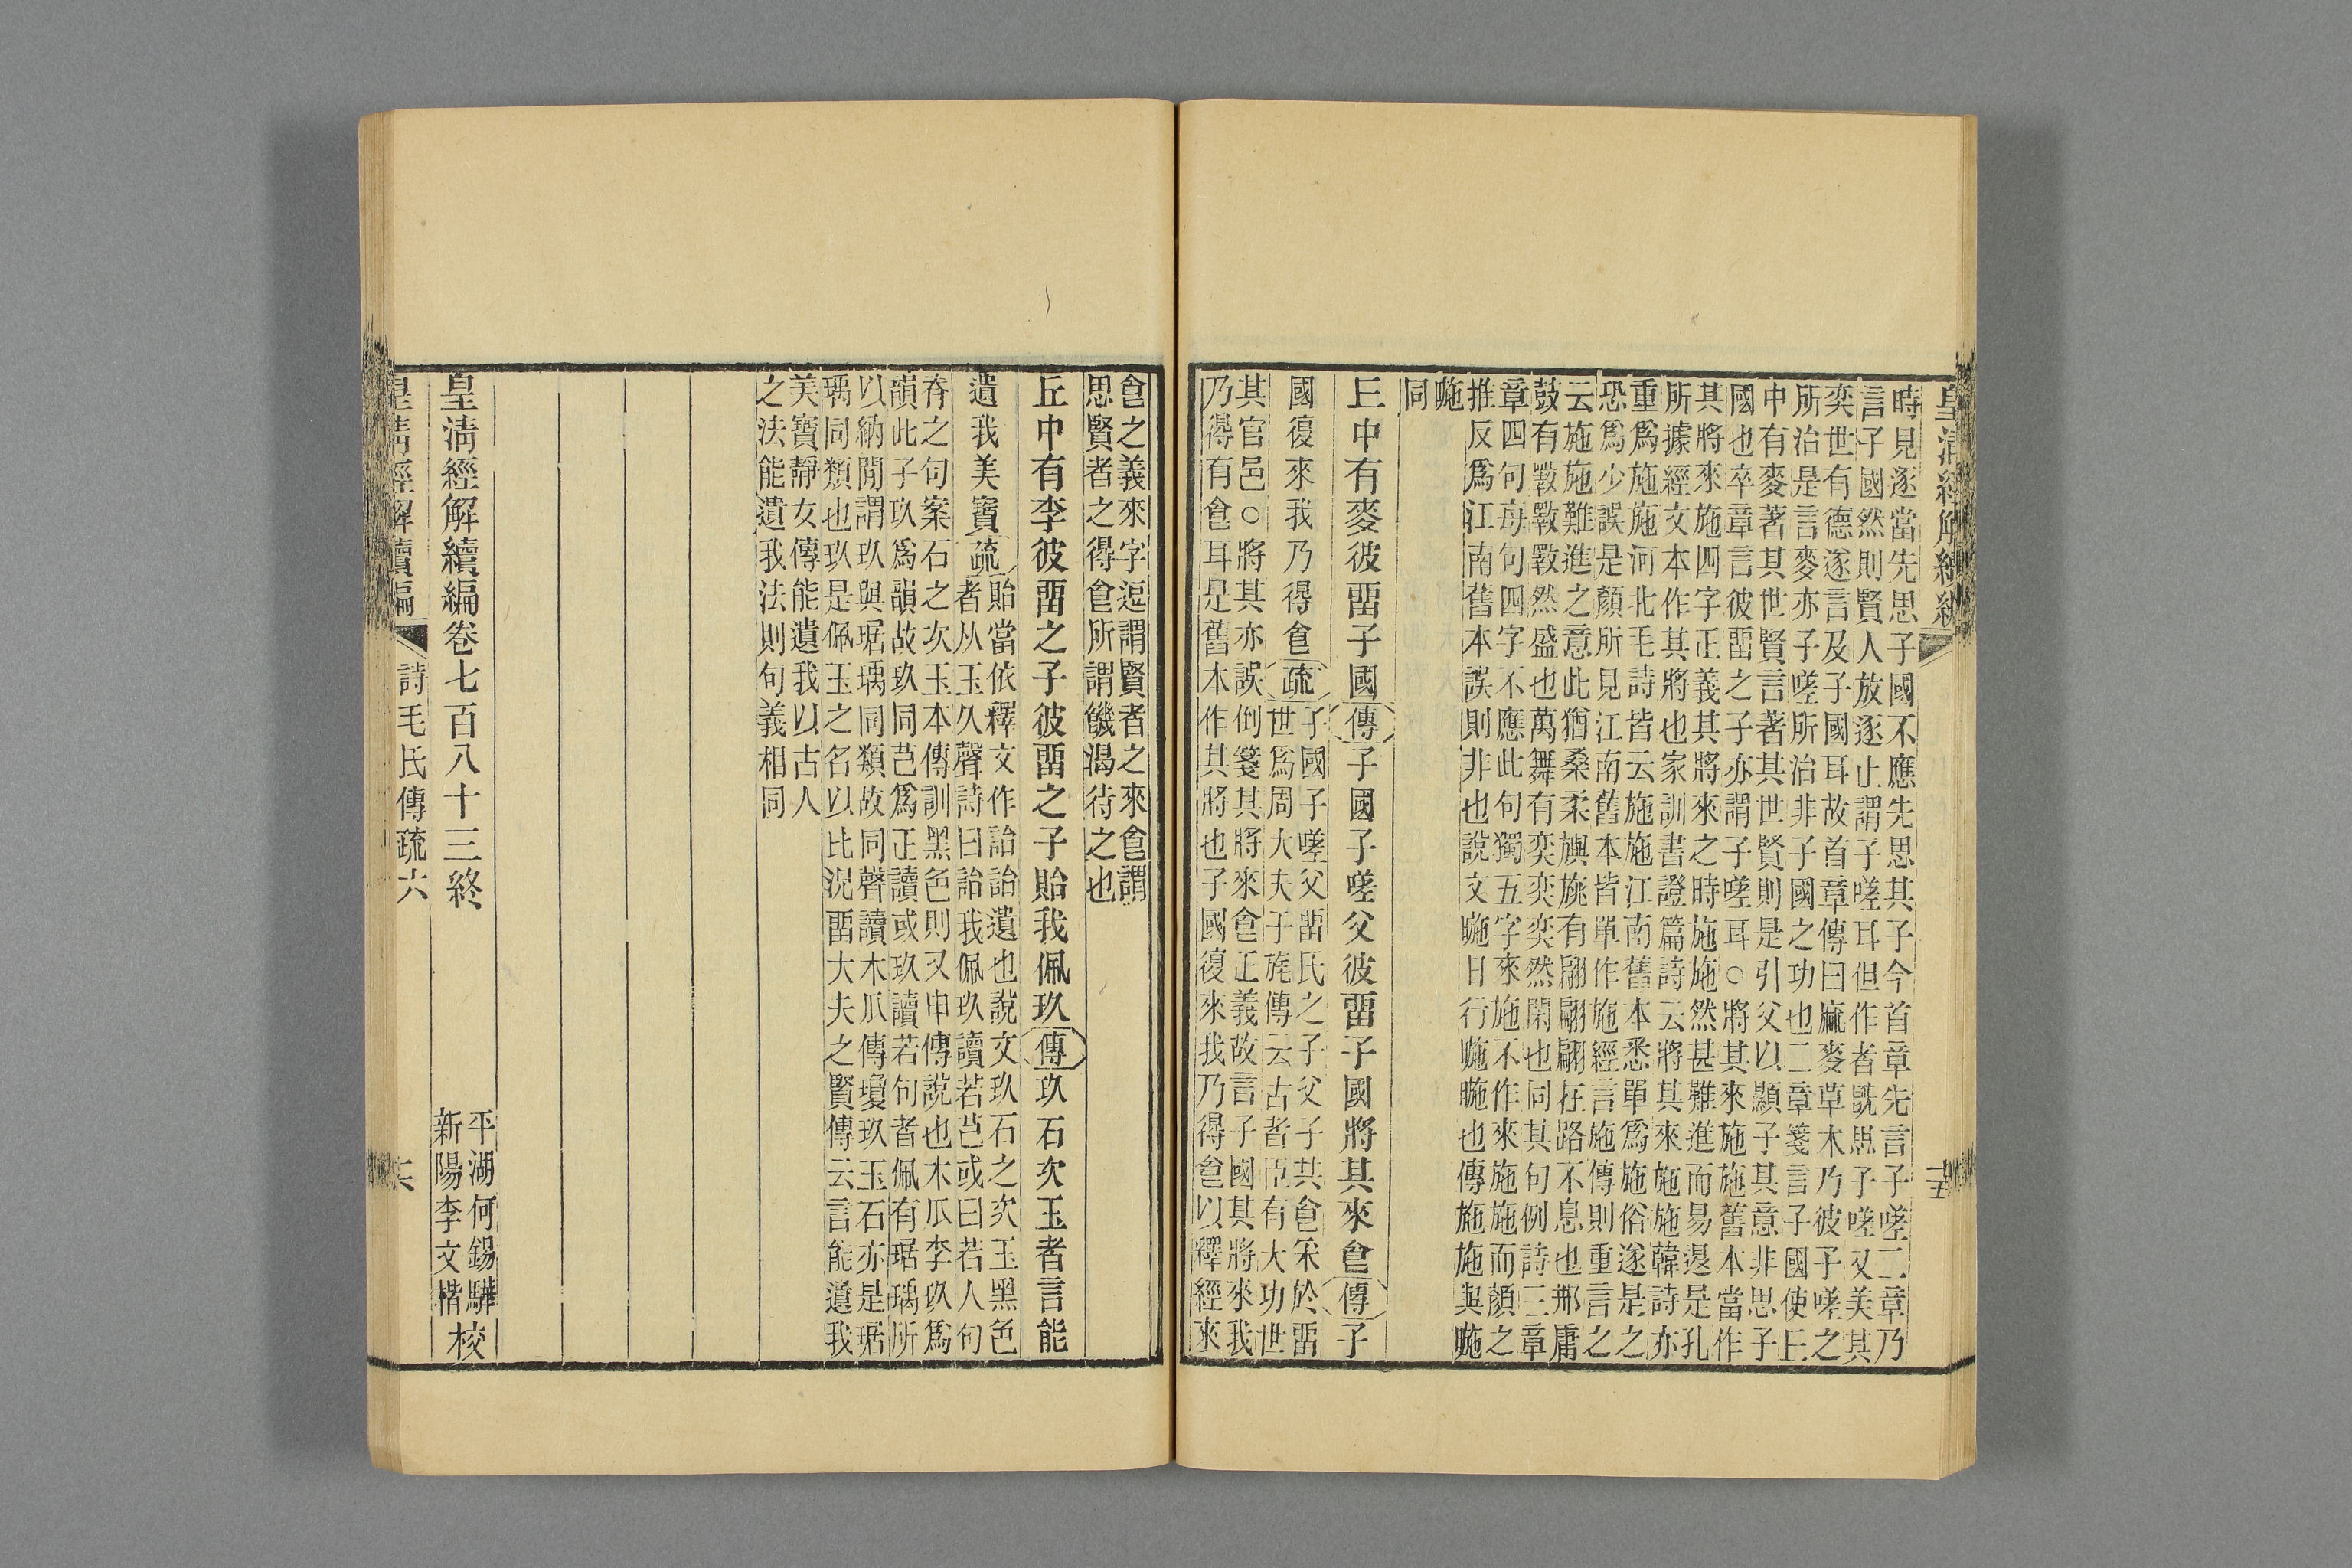 皇清經解續編
時見逐當先思子國不應先思其子今首章先言子嗟二章乃
言子國然則賢人放逐止謂子嗟耳但作者既思子嗟又美其
奕世有德遂言及子國耳故首章傳曰麻麥草木乃彼子嗟之
所治是言麥亦子嗟所治非子國之功也二章箋言子國使丘
中有麥著其世賢言著其世賢則是引父以顯子其意非思子
國也卒章言彼畱之子亦謂子嗟耳○將其來施施舊本當作
其將來施四字正義其將來之時施施然甚難進而易退是孔
所據經文本作其將也家訓書證篇詩云將其來施施韓詩亦
重爲施施河北毛詩皆云施施江南舊本悉單爲施俗遂是之
恐爲少誤是顏所見江南舊本皆單作施經言施傳則重言之
云施施難進之意此猶桑柔旟旐有翩翩翩在路不息也那庸
鼓有斁斁斁然盛也萬舞有奕奕奕然閑也同其句例詩三章
章四句每句四字不應此句獨五字來施不作來施施而顏之
推反爲江南舊本誤則非也說文暆日行暆暆也傳施施與暆
暆
同
丘中有麥彼畱子國傳子國子嗟父彼畱子國將其來食傳子
國復來我乃得食疏子國子嗟父畱氏之子父子共食采於畱
世爲周大夫于旄傳云古者臣有大功世
其官邑○將其亦誤倒箋其將來食正義故言子國其將來我
乃得有食耳是舊本作其將也子國復來我乃得食以釋經來
食之義來字逗謂賢者之來食謂
思賢者之得食所謂饑渴待之也
丘中有李彼畱之子彼畱之子貽我佩玖傳玖石次玉者言能
遺我美寶疏貽當依釋文作詒詒遺也說文玖石之次玉黑色
者从玉久聲詩曰詒我佩玖讀若芑或曰若人句
脊之句案石之次玉本傳訓黑色則又申傳說也木瓜李玖爲
韻此子玖爲韻故玖同芑爲正讀或玖讀若句者佩有琚瑀所
以納閒謂玖與琚瑀同類故同聲讀木瓜傳瓊玖玉石亦是琚
瑀同類也玖是佩玉之名以比況畱大夫之賢傳云言能遺我
美寶靜女傳能遺我以古人
之法能遺我法則句義相同
皇清經解續編卷七百八十三終
平湖何錫驊
新陽李文楷校
皇清經解續編
詩毛氏傳疏六